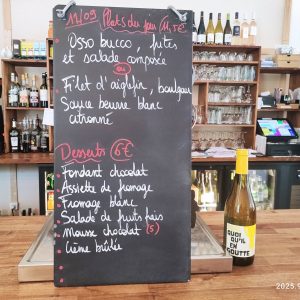 11/09 Plats du jour 11,5€
Osso bucco, frites
et salade composée
ou
Filet d'aiglefin, boulgour
Sauce beurre blanc
citronné
Desserts 6€
Fondant chocolat
Assiette de fromage
Fromage blanc
Salade de fruits frais
Mousse chocolat (5)
Crème brûlée
QUOI
QU'IL
EN
GOUTTE